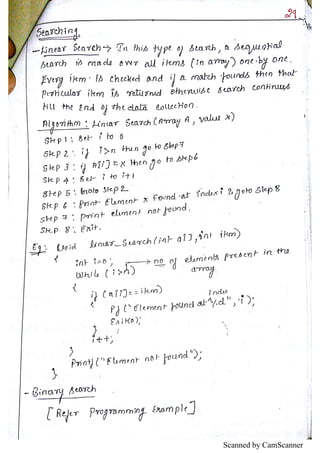 29
Searching
- Linear Search → In this type of search, a sequential
search is made over all items (in array) one by one.
Every item is checked and if a match founds then that
perticular item is returned otherwise search continues
till the end of the data collection.
Algorithm : Linear Search (Array A, value x)
Step 1 : Set i to 0
Step 2 : if i>n then go to step 7
Step 3 : if A[i] = x then go to step 6
Step 4 : Set i to i+1
Step 5 : Goto Step 2
Step 6 : Print Element x Found at index i & goto Step 8
Step 7 : print element not found.
Step 8 : Exit.
Eg: Void linear_Search (int a[], int item)
{
int i=0; → no of elements present in the
array.
while (i>n)
{
if (a[i]==item) index
{
Pf ("Element found at %d", i);
Exit(0);
}
i++;
}
Printf ("Element not found");
}
- Binary Search
[Refer Programming Example]
Scanned by CamScanner